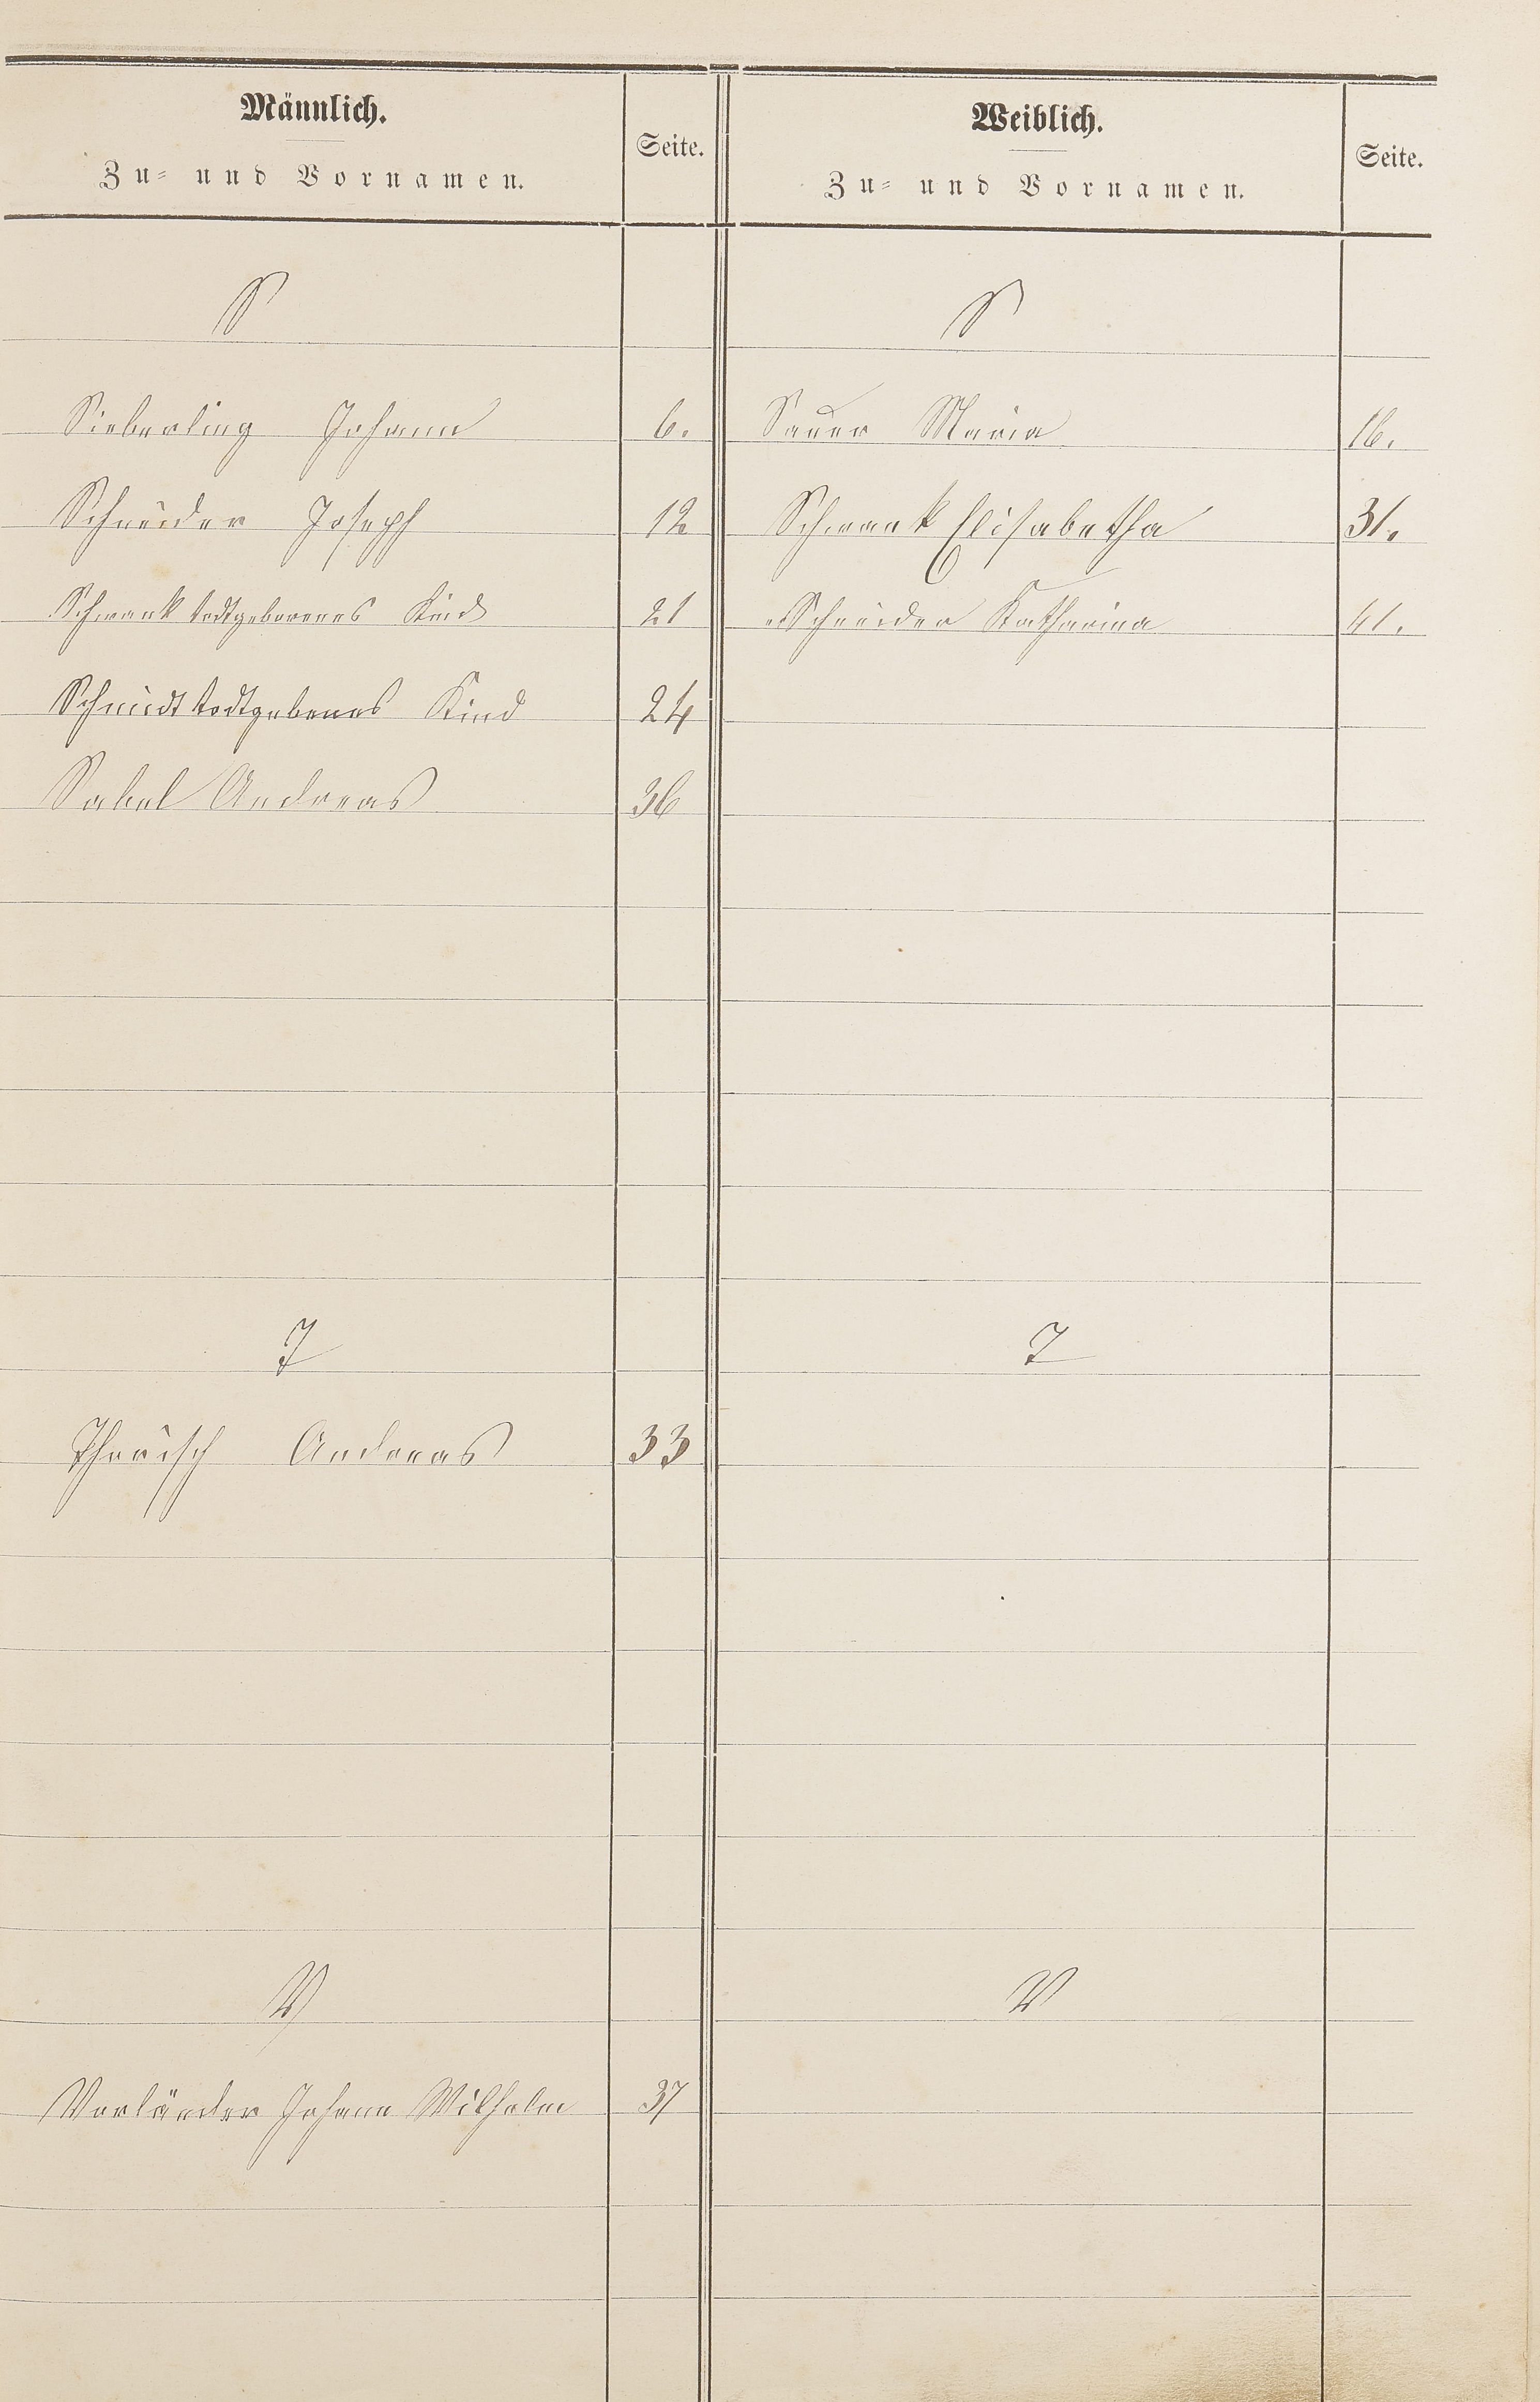 Männlich.
Zu- und Vornamen.
Seite.
Weiblich.
Zu- und Vornamen.
Seite.
S
S
Sieberling Johann 6.
Sauer Maria 16.
Schneider Joseph 12
Schwank Elisabetha 31.
Schwank todtgeborenes Kind 21
Schneider Katharina 41.
Schmidt todtgebenes Kind 24
Sabel Andreas 36
T
T
Theisch Andreas 33
V
V
Vorländer Johann Wilhelm 37